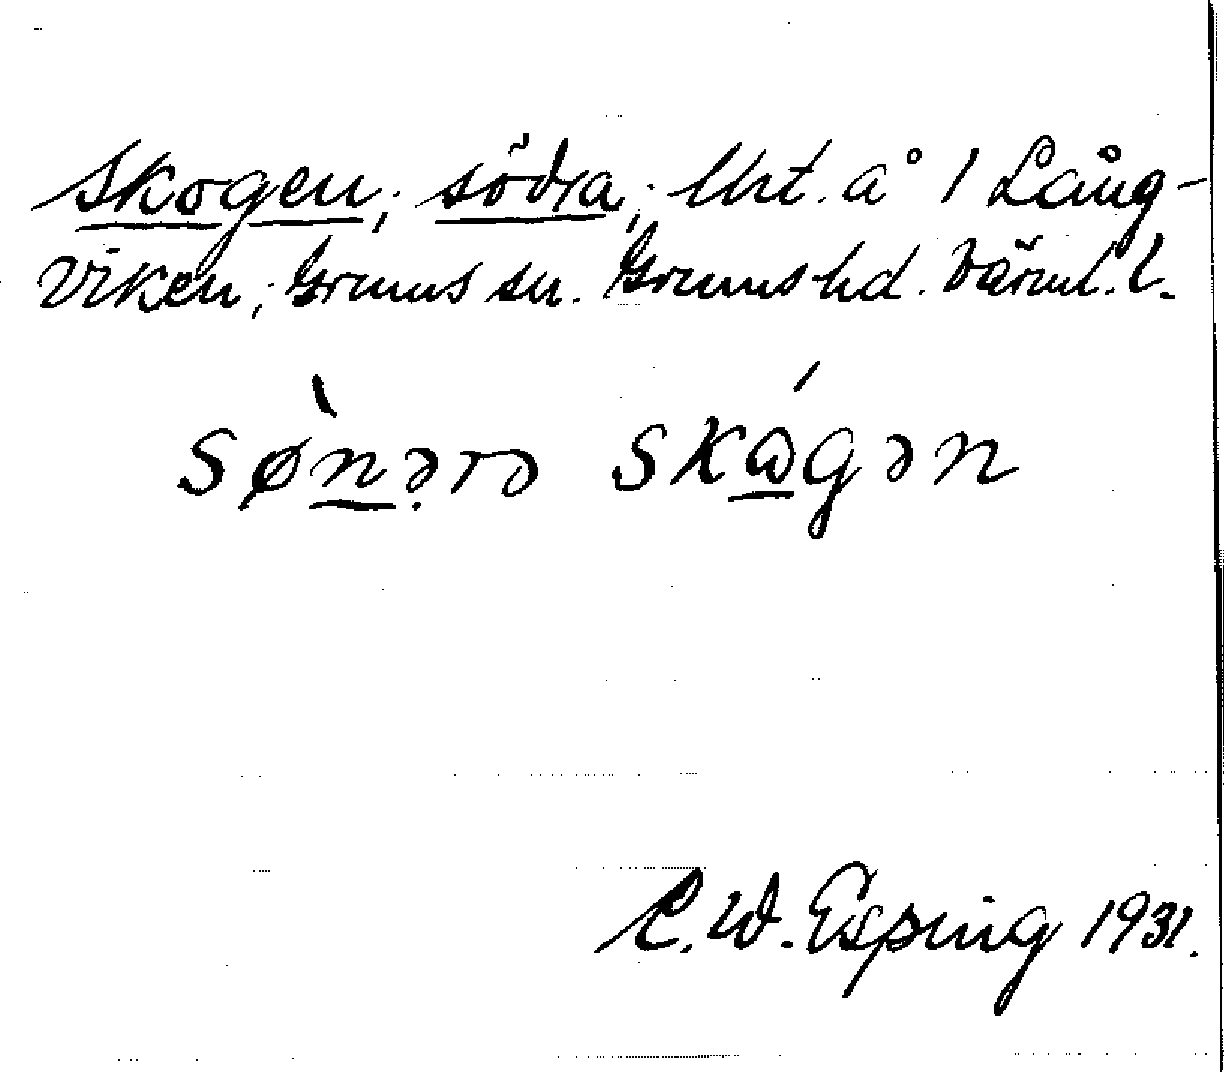 Skogen, södra; Urt. å 1 Lång-
viken; Grums sn. Grums hd. Värml. l.
sø̀nərə skógən
C. W. Esping 1931.